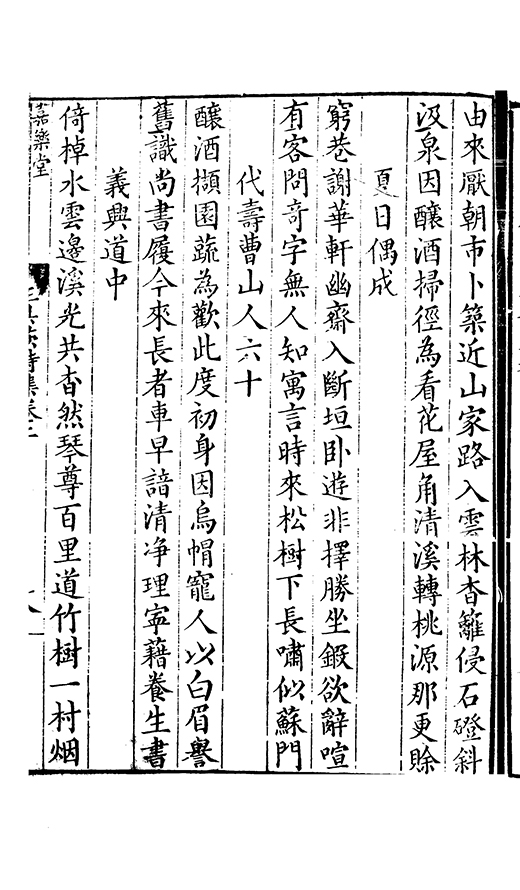 由來厭朝市卜築近山家路入雲林杳籬侵石磴斜
汲泉因釀酒掃徑為看花屋角清溪轉桃源那更賖
夏日偶成
窮巷謝華軒幽齋入斷垣卧遊非擇勝坐鍛欲辭喧
有客問竒字無人知寓言時來松樹下長嘯似蘇門
代壽曹山人六十
釀酒擷園蔬為歡此度初身因烏帽寵人以白眉譽
舊識尚書履今來長者車早諳清净理寧藉養生書
義興道中
倚棹水雲邊溪光共杳然琴尊百里道竹樹一村烟
嘉樂堂